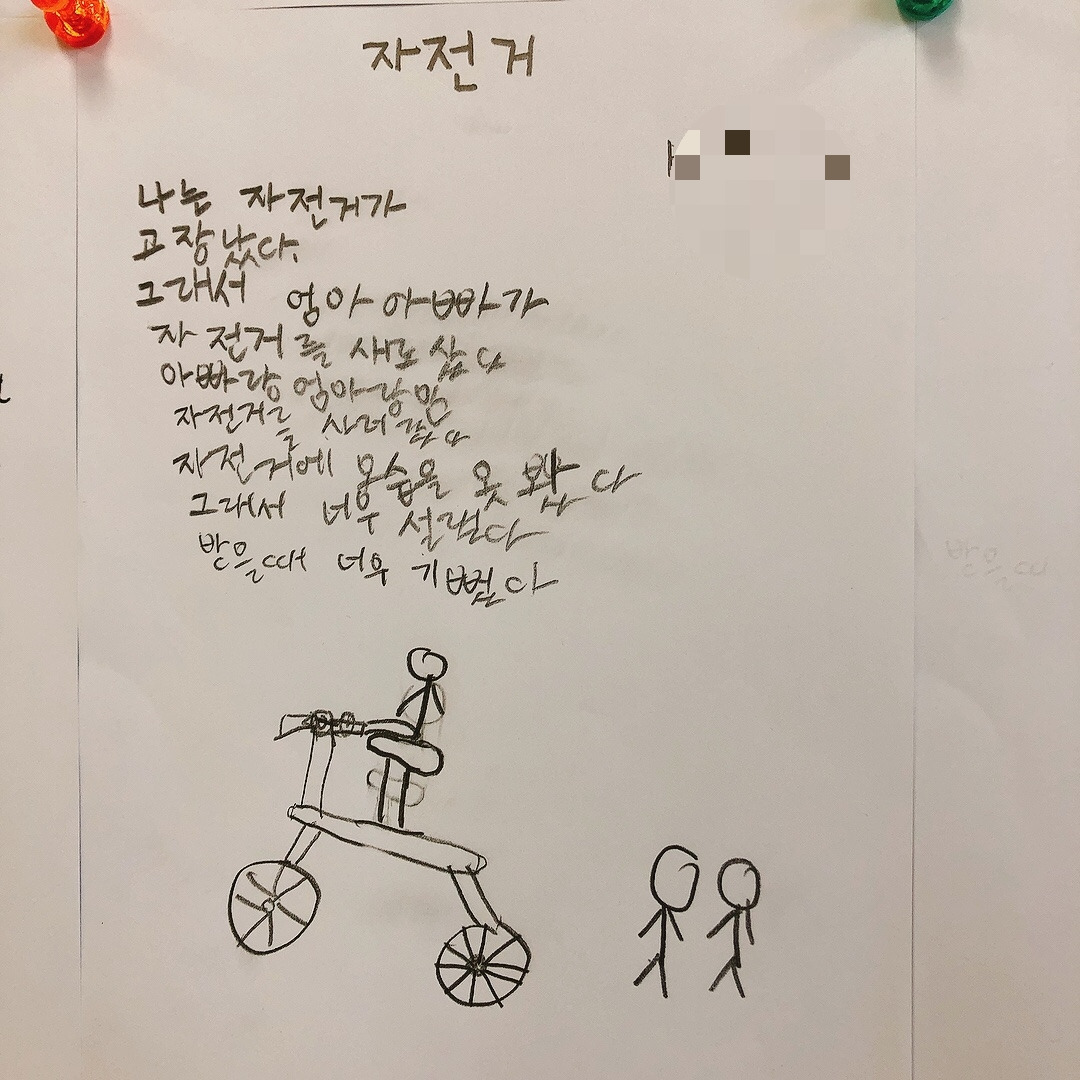 자전거
나는 자전거가
고장났다.
그래서 엄아 아빠가
자전거를 새로 샀다
아빠랑 엄아랑만
자전거를 사러갔다
자전거에 용습을 옷 봤다
그래서 너우 설랬다
받을때 너우 기뻤다
받을때